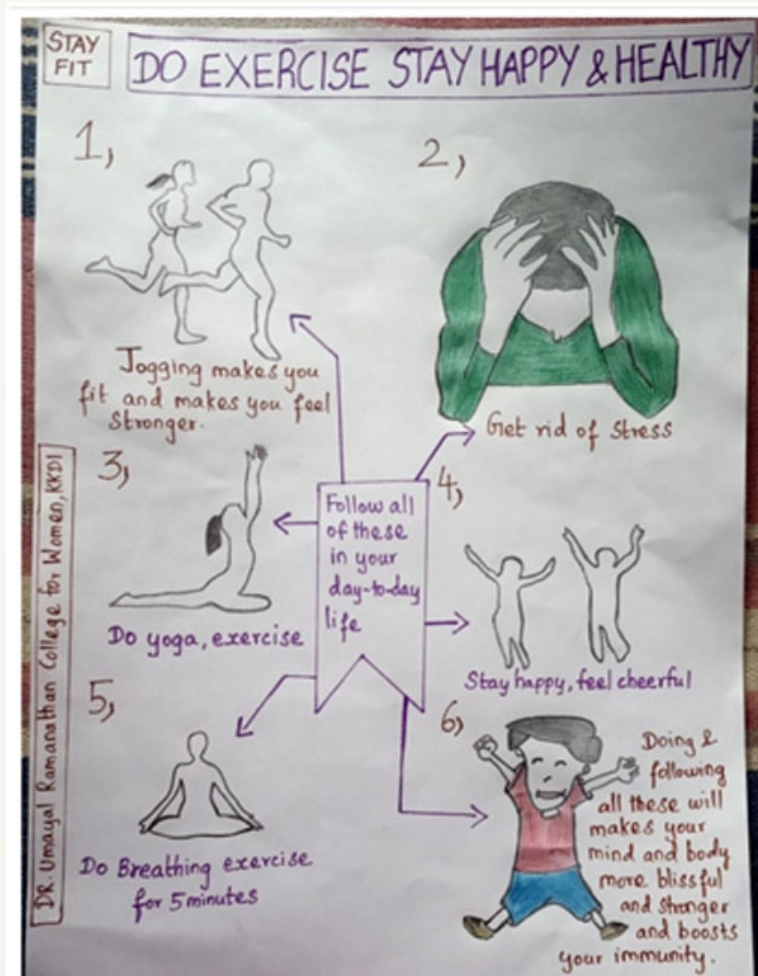 STAY
FIT
DO EXERCISE STAY HAPPY & HEALTHY
1,
Jogging makes you
fit and makes you feel
Stronger.
2,
Get rid of Stress
3,
Do yoga, exercise
Follow all
of these
in your
day-to-day
life
4,
Stay happy, feel cheerful
5,
Do Breathing exercise
for 5 minutes
6,
Doing &
following
all these will
makes your
mind and body
more blissful
and stronger
and boosts
your immunity.
DR. Umayal Ramanathan College for Women, KKDI